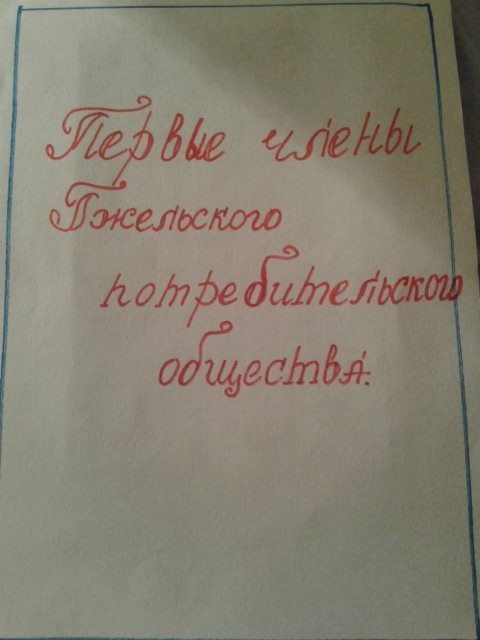 Первые члены
Гжельского
потребительского
общества.